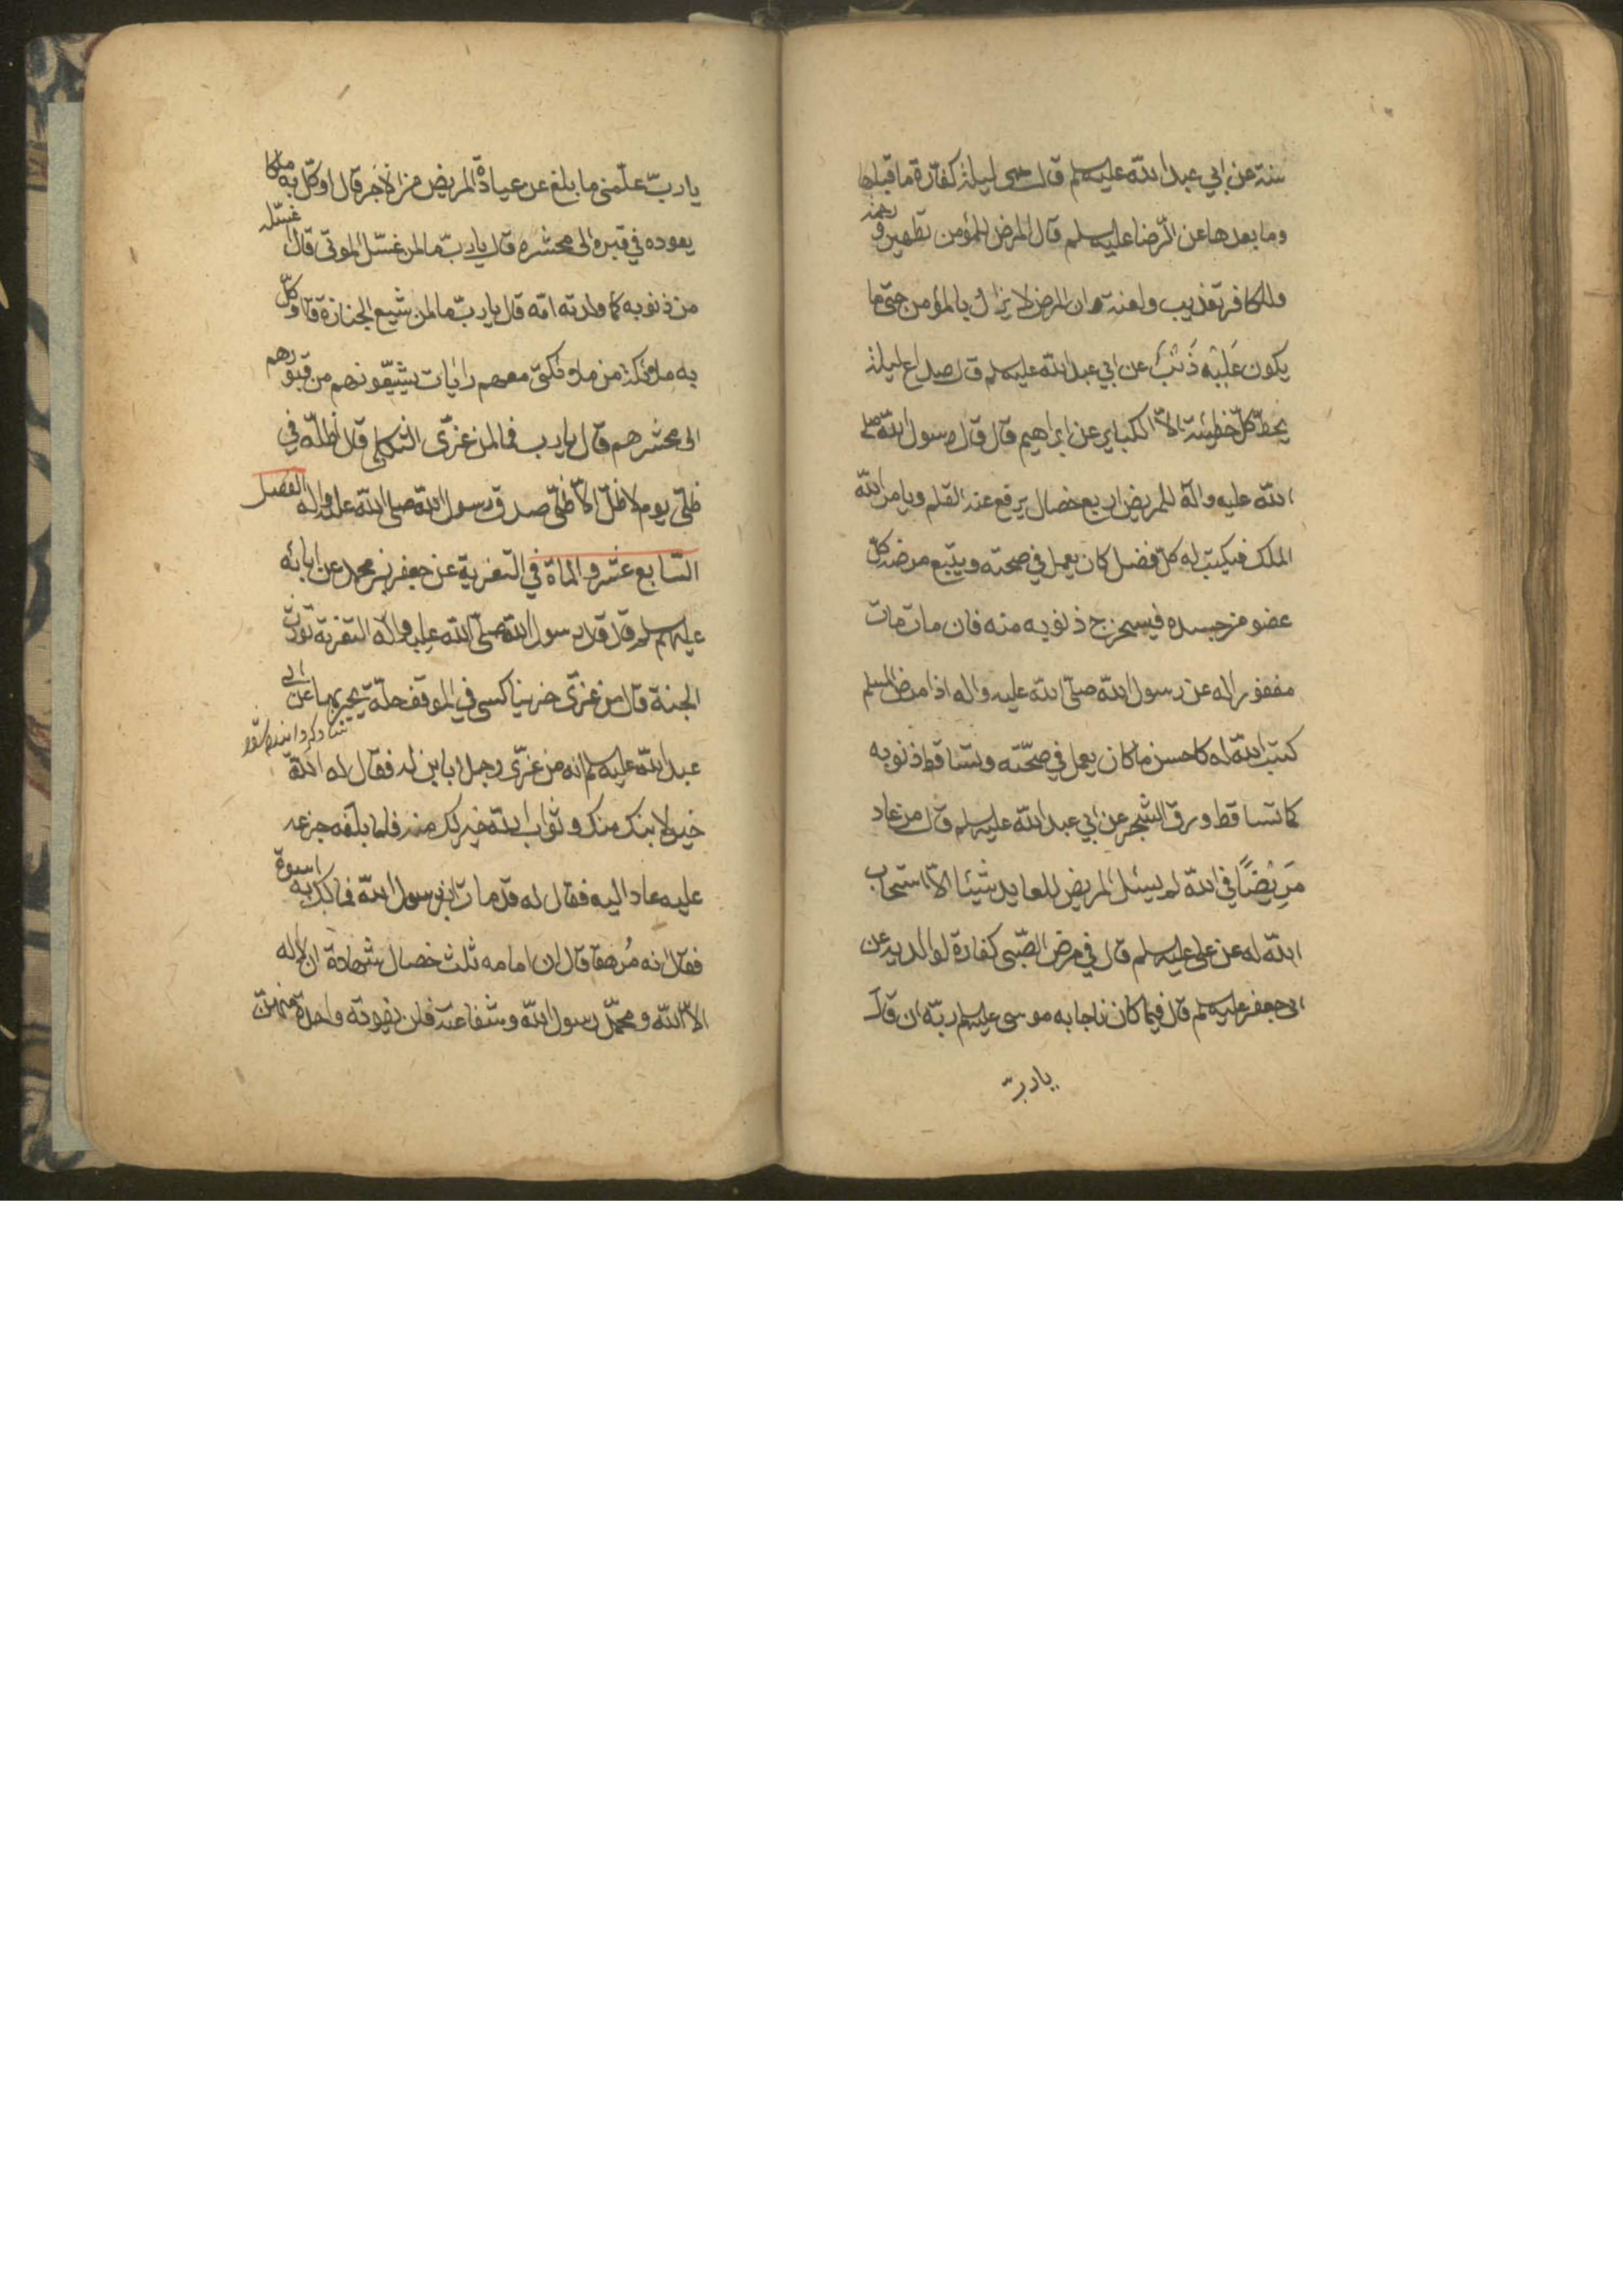 سنة عن ابي عبد الله عليه سلم قال حمى ليلة كفارة ما قبلها
وما بعدها عن الرّضا عليه سلم قال المرض للمؤمن تطهير و رحمة
وللكافر تعذيب ولعنة وان المرض لا يزال بالمؤمن حتى ما
يكون عَلَيْه ذَنْبٌ عن ابي عبد الله عليه سلم قال صداع ليلة
يحطّ كلّ خطيئة الاّ الكباير عن ابراهيم قال قال رسول الله صلى
الله عليه واله للمريض اربع خصال يرفع عنه القلم ويامر الله
الملك فيكتب له كلّ فضل كان يعمل في صحته ويتّبع مرضه كلّ
عضو من جسده فيستخرج ذنوبه منه فان مات مات
مغفورا له عن رسول الله صلّى الله عليه واله اذا مرض المسلم
كتب الله له كاحسن ما كان يعمل في صحّته وتساقط ذنوبه
كما تساقط ورق الشجر عن ابي عبد الله عليه سلم قال من عاد
مَرِيْضًا في الله لم يسئل المريض للعايد شيئا الاّ استجاب
الله له عن على عليه سلم قال في مرض الصّبى كفارة لوالديه عن
ابى جعفر عليه سلم قال فيما كان ناجا به موسى عليه سلم ربّه ان قال
يا ربّ
يا ربّ علّمنى ما بلغ عن عيادة المريض من الاجر قال اوكّل به ملكا
يعوده في قبره الى محشره قال يا ربّ ما لمن غسّل الموتى قال اغسّله
من ذنوبه كما ولدته امّه قال يا ربّ ما لمن شيع الجنازة قال اوكّل
به ملائكة من ملائكتى معهم رايات يشيّعونهم من قبورهم
الى محشرهم قال يا رب فما لمن عزّى الثكلى قال اظلّه في
ظلّى يوم لا ظلّ الاّ ظلّى صدق رسول الله صلى الله عليه واله الفصل
السّابع عشر والمائة في التعزية عن جعفر بن محمد عن ابائه
عليهم سلم قال قال رسول الله صلّى الله عليه واله التعزية تورث
الجنة قال من عزّى حزينا كسى في الموقف حلّة يحبر بها عن ابى
عبد الله عليه سلم انه من عزّى رجلا بابن له فقال له الله
خير لابنك منك وثواب الله خير لك منه فلما بلغه جزعه
عليه عاد اليه فقال له قد مات ابن رسول الله فما لك به اسوة
فقال انه مُرهقا قال ان امامه ثلث خصال شهادة ان لا اله
الاّ الله ومحمّد رسول الله وشفاعته فلن يفوته واحدة منهنّ